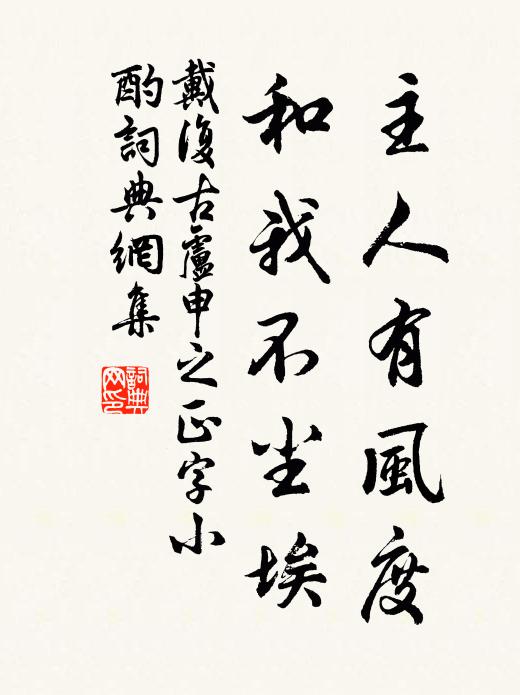 主人有風度
和我不尘埃
戴復古盧申之正字小
酌詞典網集
詞典
网印